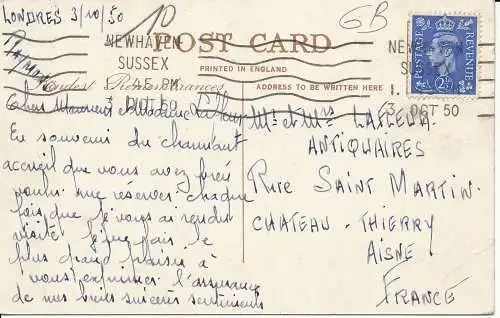 LONDRES 3/10/50
10
GB
POST CARD
NEWHAVEN
SUSSEX
45 PM
3 OCT 50
PRINTED IN ENGLAND
ADDRESS TO BE WRITTEN HERE
POSTAGE REVENUE
2½D
NE
S
1
3 OCT 50
Kindest Remembrances
Chers Monsieur et Madame
En souvenir du charmant
accueil que vous avez bien
voulu me réserver chaque
fois que je vous ai rendu
visite le
plus grand plaisir à
vous exprimer l'assurance
de mes bien sincères sentiments
Mr et Mrs
ANTIQUAIRES
Rue SAINT MARTIN
CHATEAU-THIERRY
AISNE
FRANCE